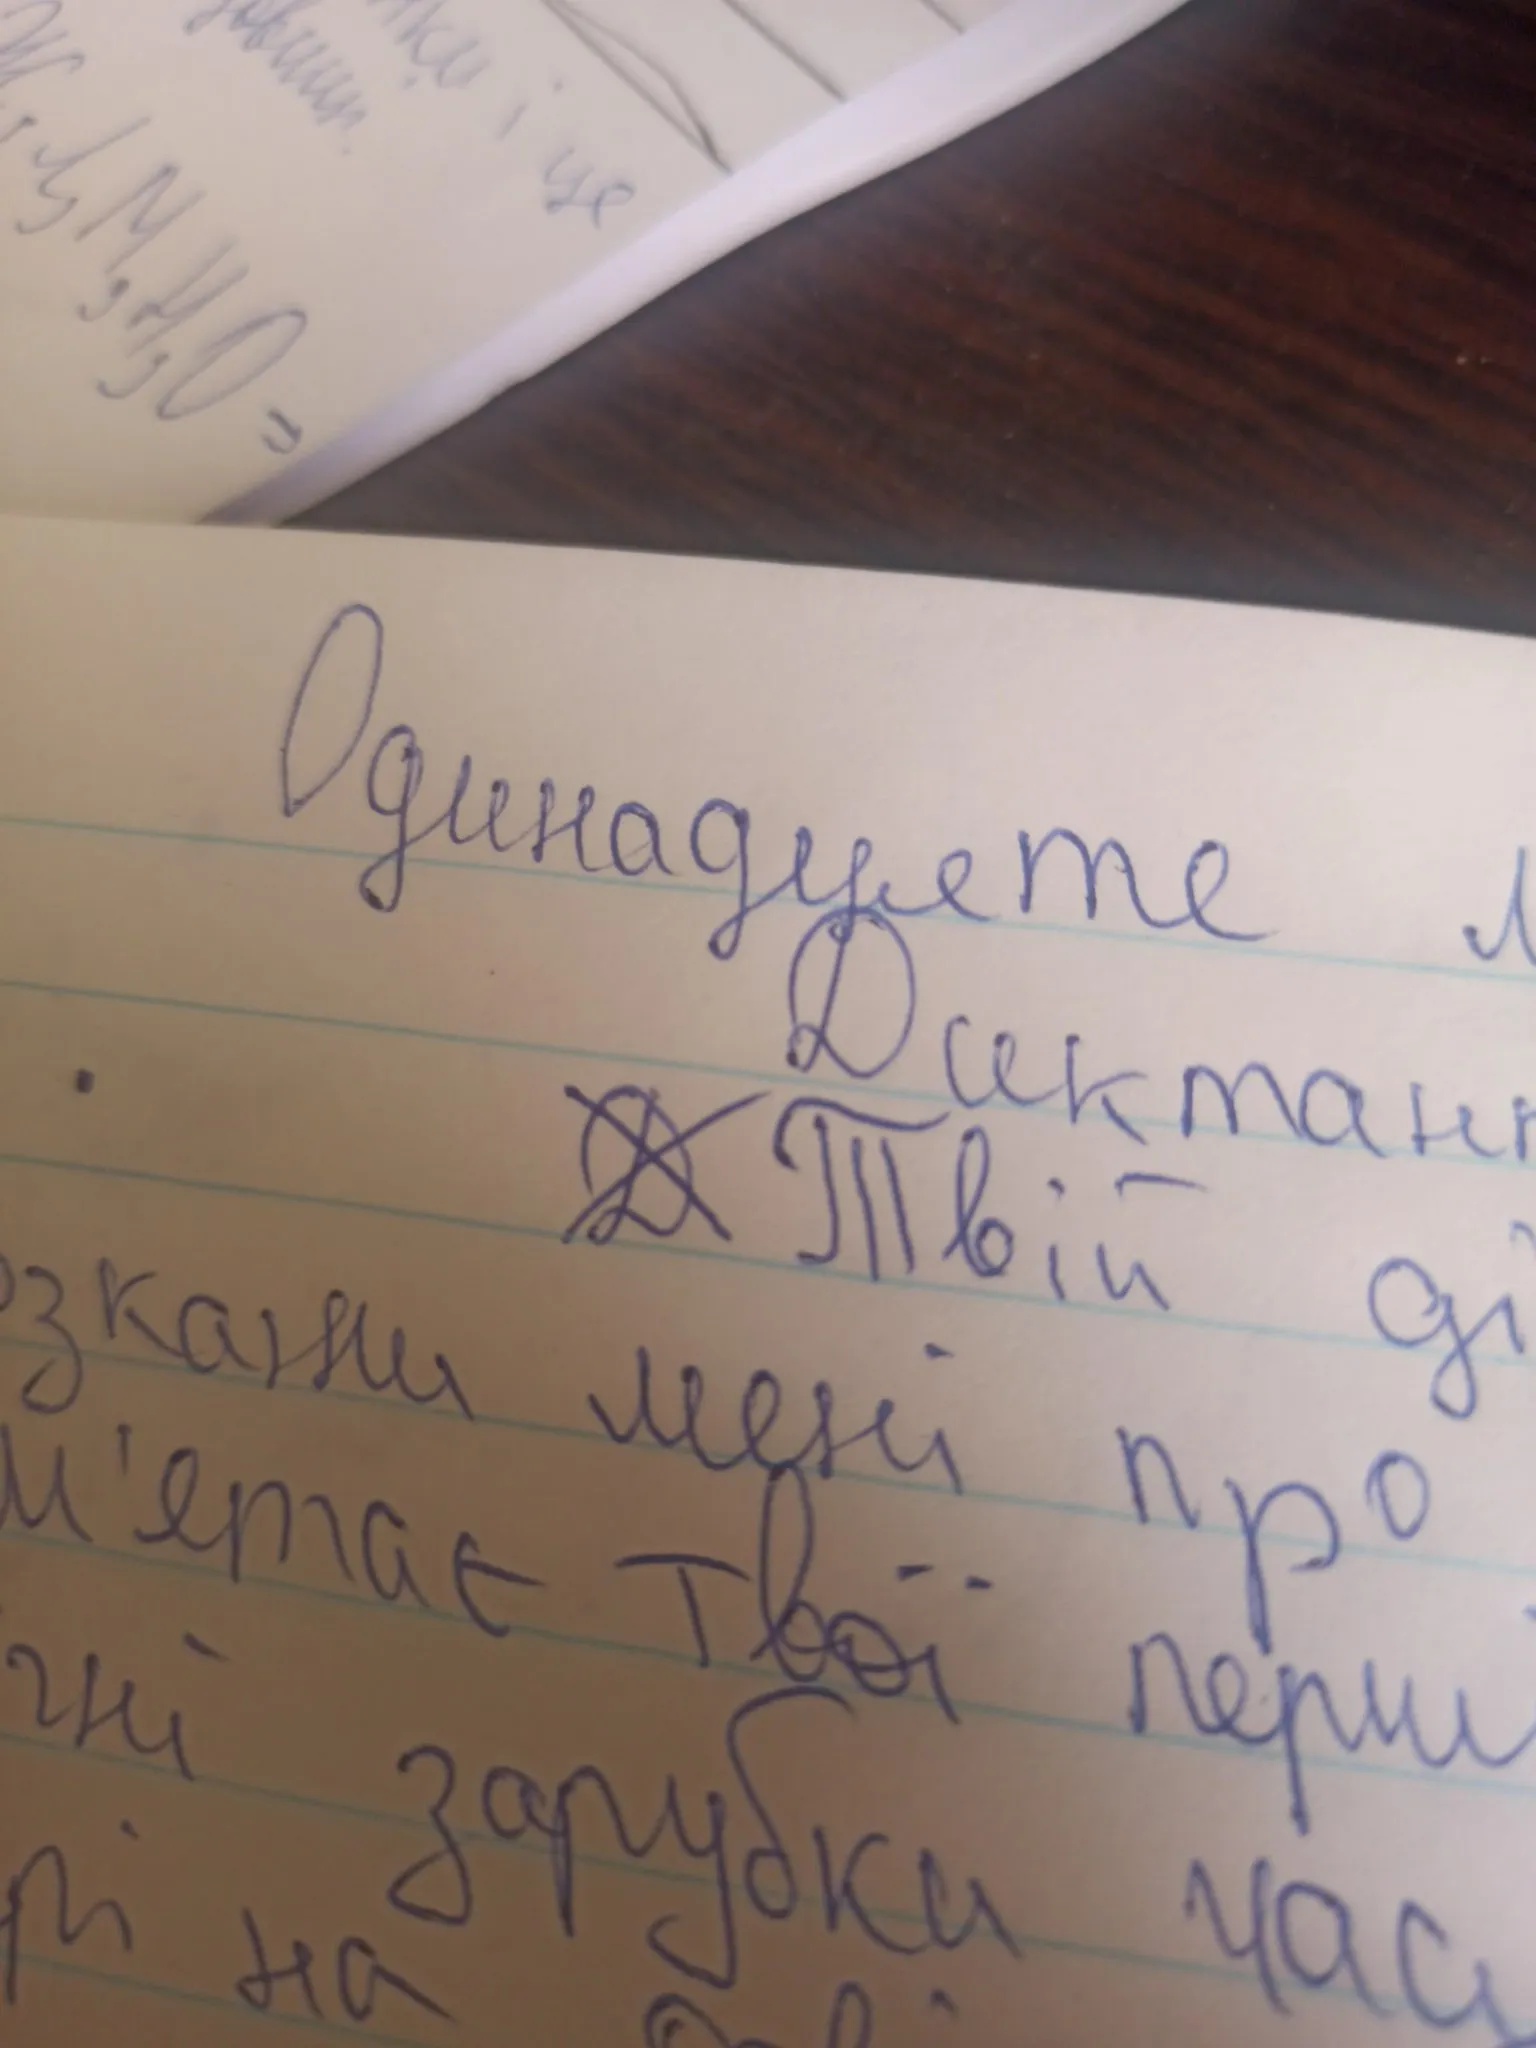 і це
М, Н, О =
Одинадцяте л
Диктан
Твій ді
озкажи мені про
м'ятає твої перш
чні зарубки час
рі на